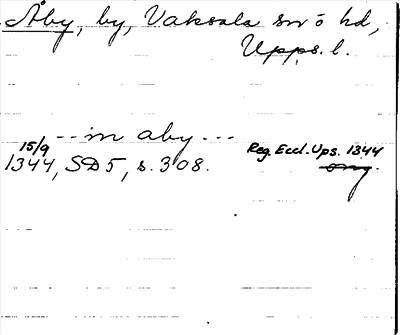 Åby, by, Vaksala sn o hd,
Upps. l.
--- in aby ---
15/9
1344, SD 5, s. 308.
Reg. Eccl. Ups. 1344
orig.